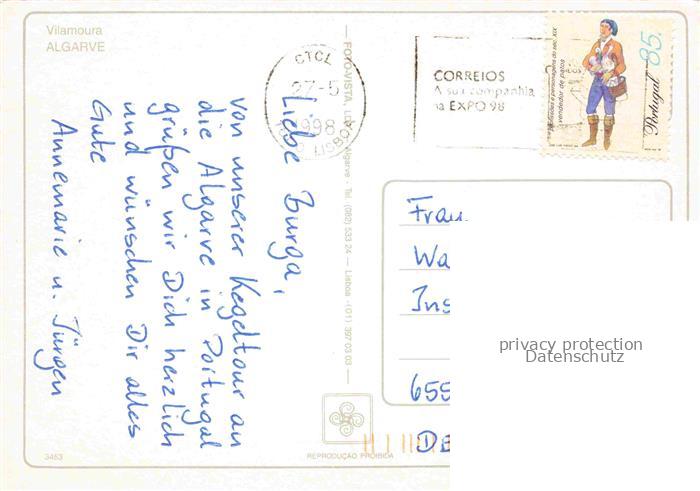 Vilamoura
ALGARVE
Liebe Burga,
von unserer Kegeltour an
die Algarve in Portugal
grüßen wir Dich herzlich
und wünschen Dir alles
Gute
Annemarie u. Jürgen
3463
FOTO-VISTA, LDA
Algarve - Tel. (082) 533 24 - Lisboa - (01) 397 03 02
REPRODUÇÃO PROIBIDA
CTCL
27-5
1998
LISBOA
CORREIOS
A sua companhia
na EXPO 98
Portugal
85
Profissões e personagens do séc. XIX
vendedor de patos
Frau
Wa
Ins
655
DE
privacy protection
Datenschutz